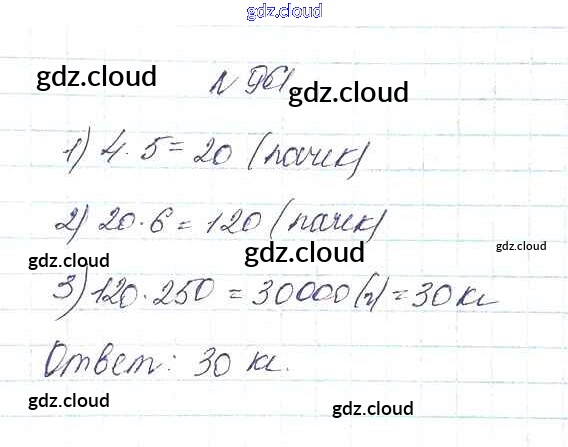 gdz.cloud
gdz.cloud
№ 961
gdz.cloud
1) 4 · 5 = 20 (пачек)
2) 20 · 6 = 120 (пачек)
gdz.cloud
gdz.cloud
gdz.cloud
3) 120 · 250 = 30000 (г) = 30 кг
Ответ: 30 кг.
gdz.cloud
gdz.cloud